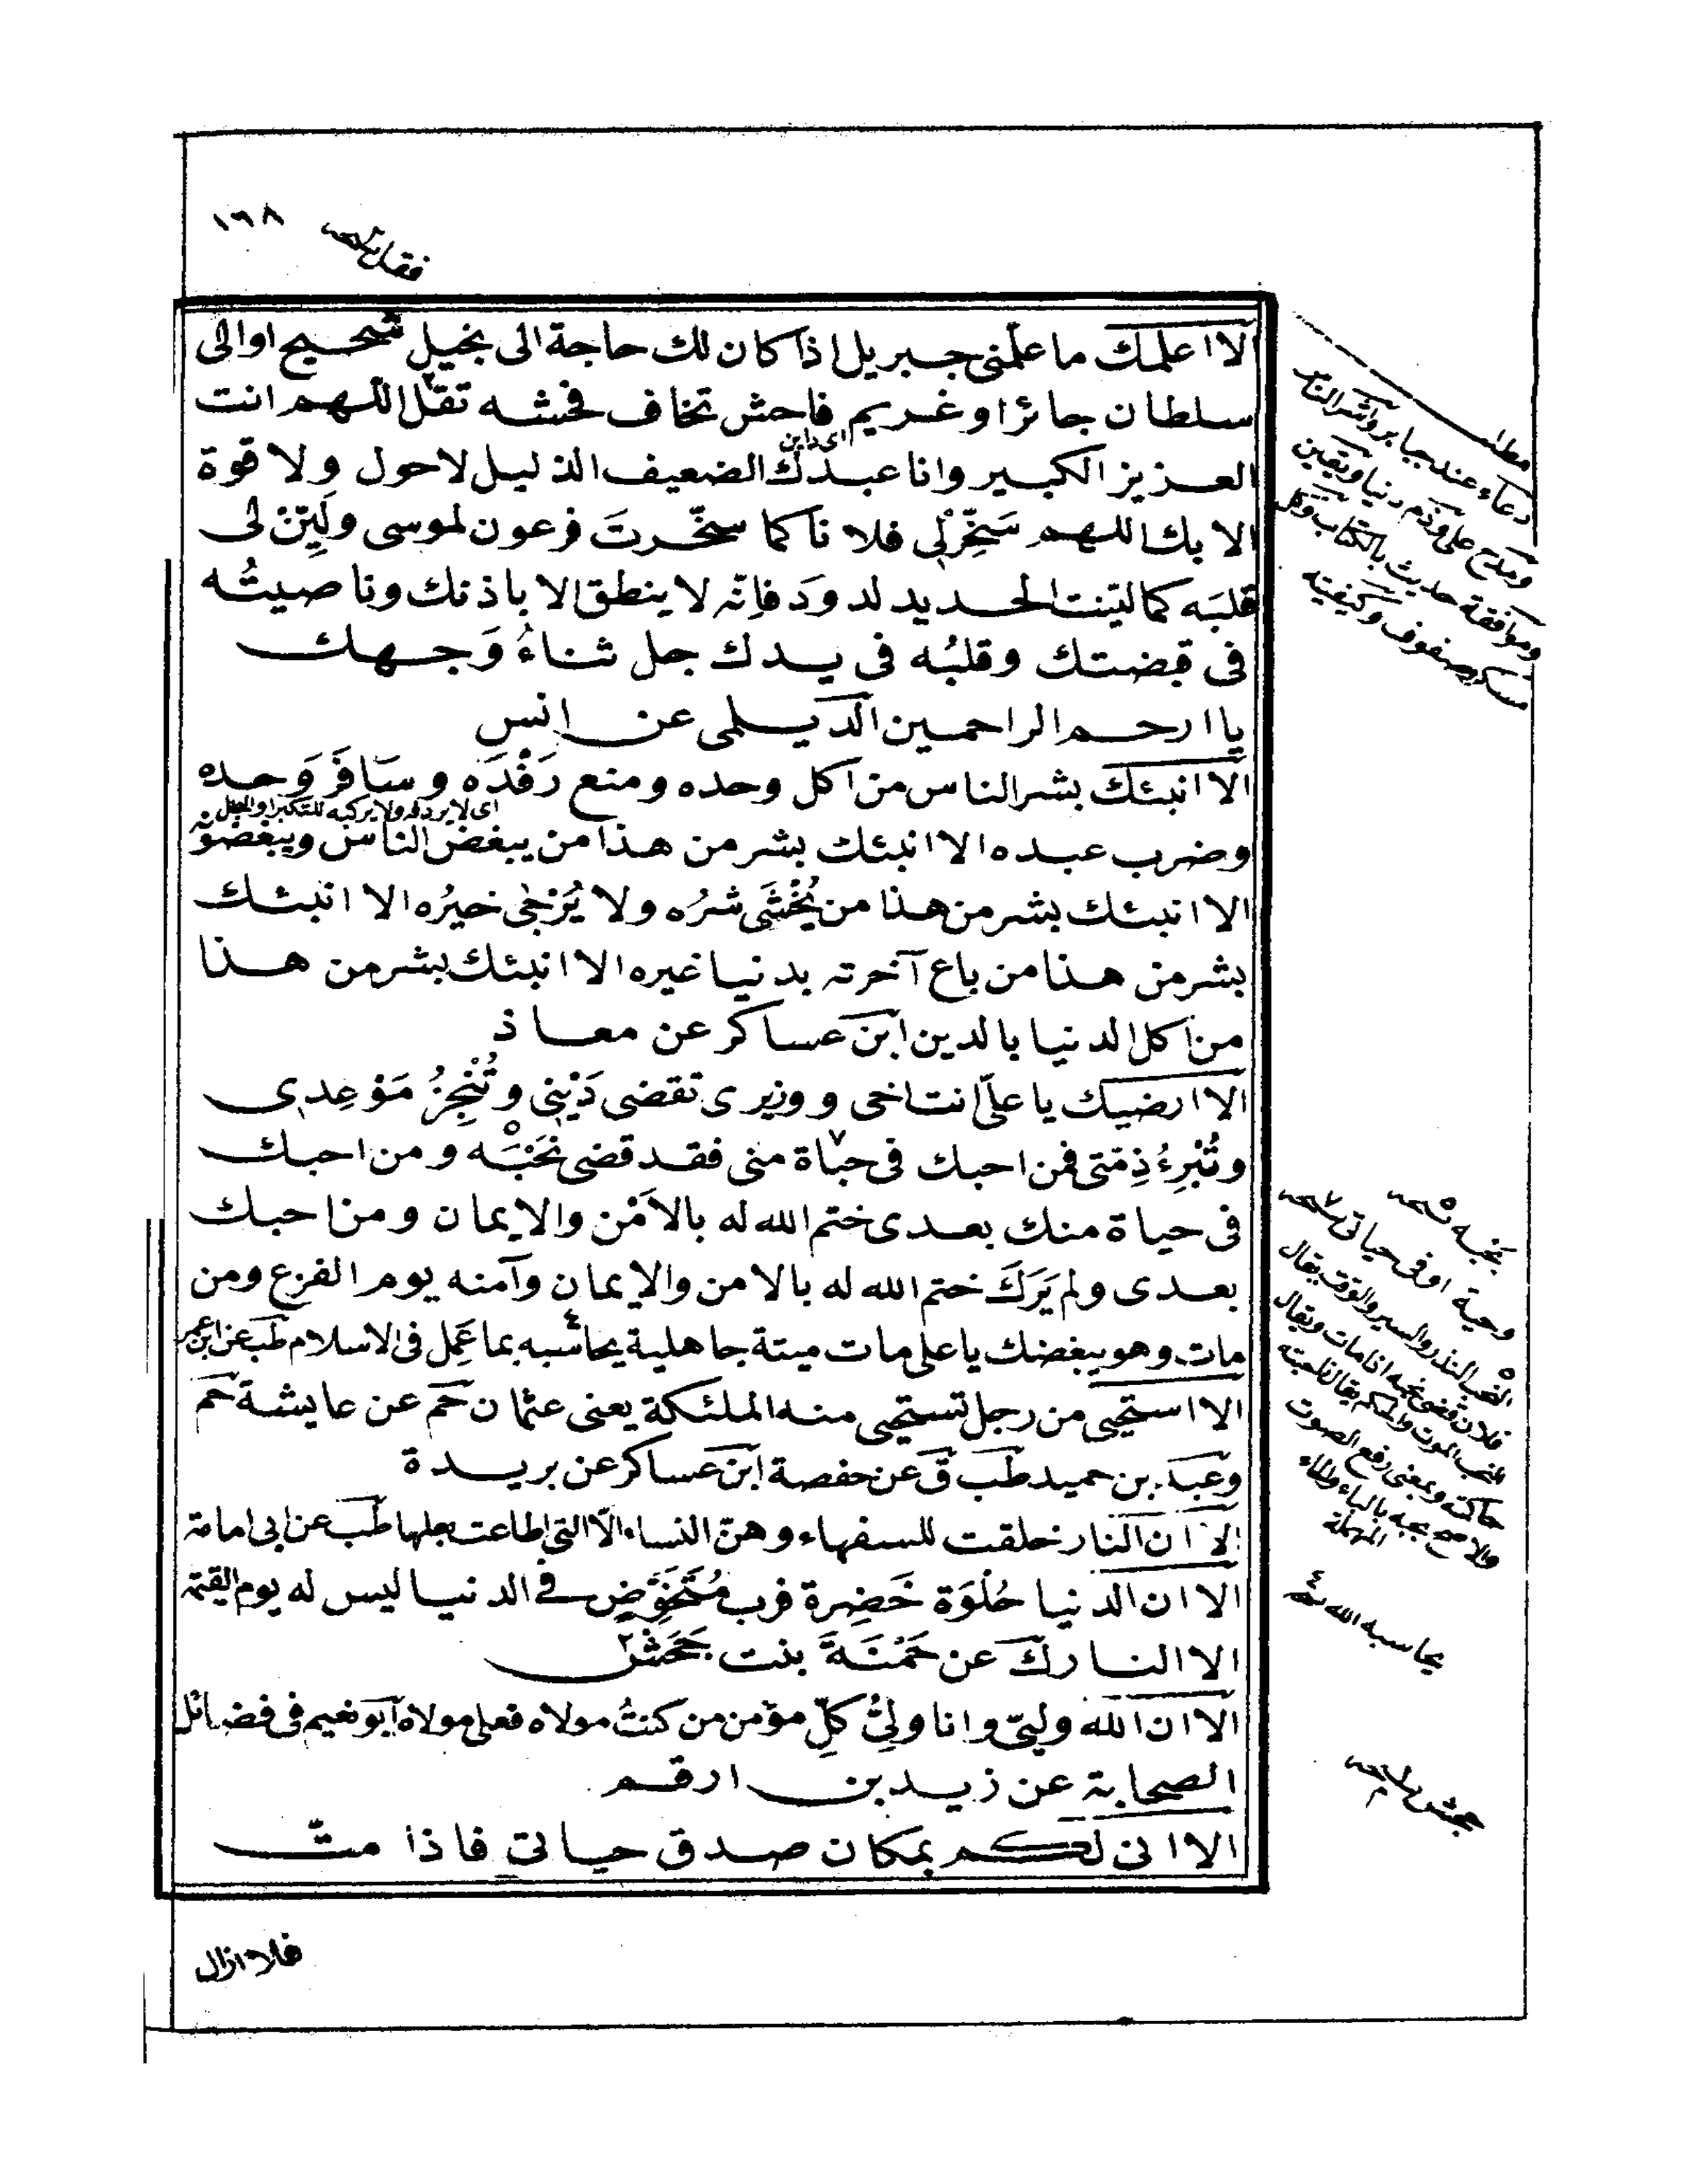 ١٦٨
فقل نسخه
الا اعلمك ما علّمنى جبريل اذا كان لك حاجة الى بخيل شحيح او الى
سلطان جائر او غريم فاحش تخاف فحشه تقل اللهم انت
اى داين
العزيز الكبير وانا عبدك الضعيف الذليل لاحول ولا قوة
الا بك اللهم سَخِّرْلى فلانا كما سخّرتَ فرعون لموسى ولَيِّنْ لى
قلبَه كما لينت الحديد لدودَ فاِنّه لا ينطق الا باذنك وناصيتُه
فى قبضتك وقلبُه فى يدك جل ثناءُ وَجهك
يا ارحم الراحمين الديلمى عن انس
الا انبئك بشر الناس من اكل وحده ومنع رَفْدَه وسَافَرَ وَحده
اى لا يردفه ولا يركبه للتكبر او البخل
وضرب عبده الا انبئك بشر من هذا من يبغض الناس ويبغضونه
الا انبئك بشر من هذا من يُخْشَى شرُه ولا يُرْجٰى خيرُه الا انبئك
بشر من هذا من باع آخرته بدنيا غيره الا انبئك بشر من هذا
من اكل الدنيا بالدين ابن عساكر عن معاذ
الا ارضيك يا علىّ انت اخى ووزيرى تقضى دَيْنِى وتُنْجِزُ مَوْعِدِى
وتُبْرِءُ ذِمّتى فمن احبك فى حياة منى فقد قضى نَحْبَه ومن احبك
فى حياة منك بعدى ختم الله له بالاَمْن والايمان ومن احبك
بعدى ولم يَرَكَ ختم الله له بالامن والايمان وآمنه يوم الفزع ومن
مات وهو يبغضك يا على مات ميتة جاهلية يحاسبه بما عَمِل فى الاسلام طب عن ابن عمر
الا استحيى من رجل تستحيى منه الملئكة يعنى عثمان حم عن عايشة حم
وعبد بن حميد طب ق عن حفصة ابن عساكر عن بريدة
الا ان النار خلقت للسفهاء وهنّ النساء الّا التى اطاعت بعلها طب عن ابى امامة
الا ان الدنيا حُلْوَة خَضِرة فرب مُتَخَوِّضٍ فى الدنيا ليس له يوم القيمة
الا النار ك عن حَمْنَةَ بنت جَحَش
الا ان الله وليّى وانا ولىُّ كلِّ مؤمن من كنتُ مولاه فعلى مولاه ابو نعيم فى فضائل
الصحابة عن زيد بن ارقم
الا انى لكم بمكان صدق حياتى فاذا متّ
فلا ازال
مطلب
دعاء عند جابر واشر الناس
ومدح على وذم دنيا ويقين
وموافقة حديث بالكتاب
صفوف وكيفيته
نحبه نسخه
وحية او فى حياتى نسخه
النحب النذر والسير والوقت يقال
فلان قضى نحبه اذا مات ويقال
وبمعنى رفع الصوت
والاصح نحبه بالباء والحاء
المهملة
يحاسبه الله نسخه
جحش نسخه